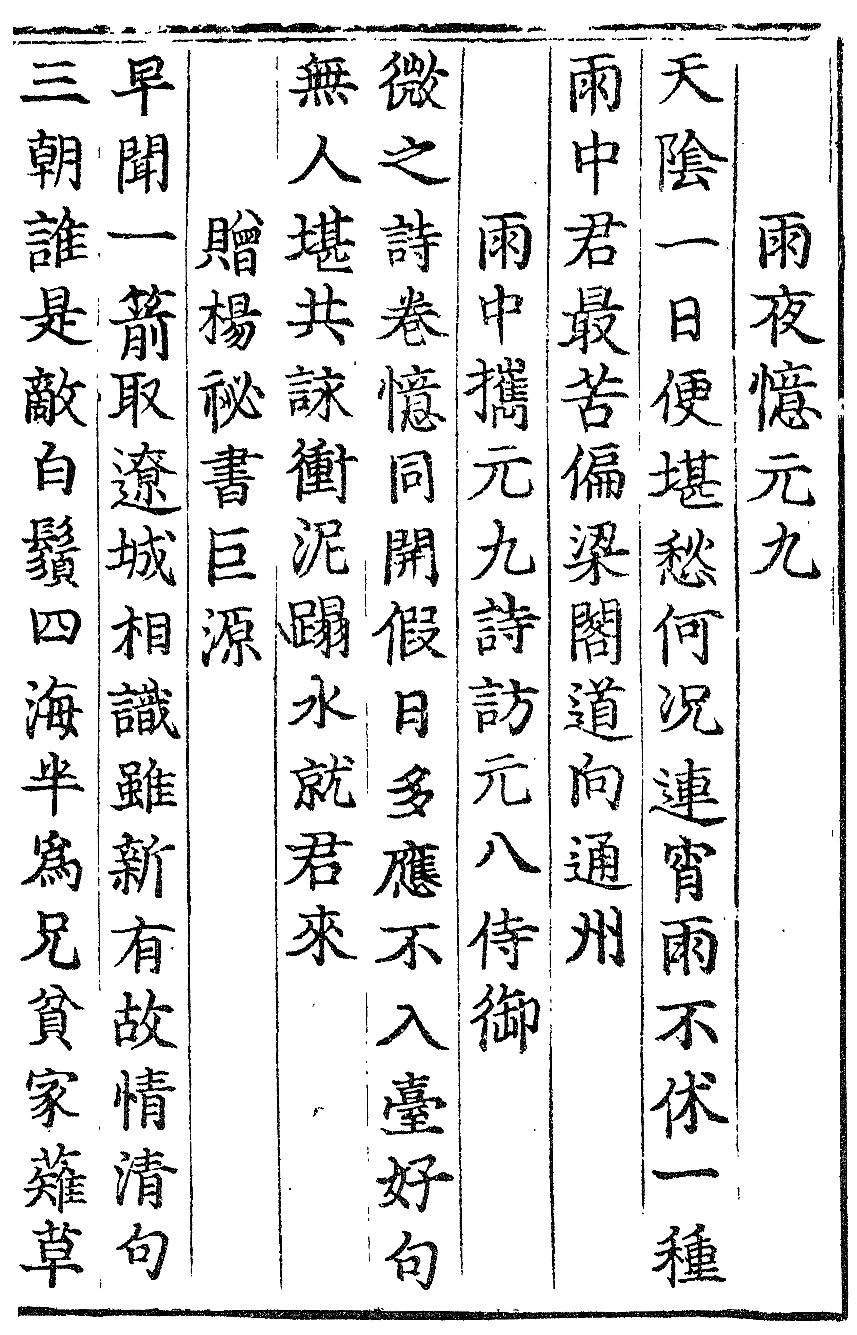 雨夜憶元九
天陰一日便堪愁何况連宵雨不休一種
雨中君最苦偏梁閣道向通州
雨中攜元九詩訪元八侍御
微之詩卷憶同開假日多應不入臺好句
無人堪共詠衝泥蹋水就君來
贈楊祕書巨源
早聞一箭取遼城相識雖新有故情清句
三朝誰是敵白鬚四海半爲兄貧家薙草